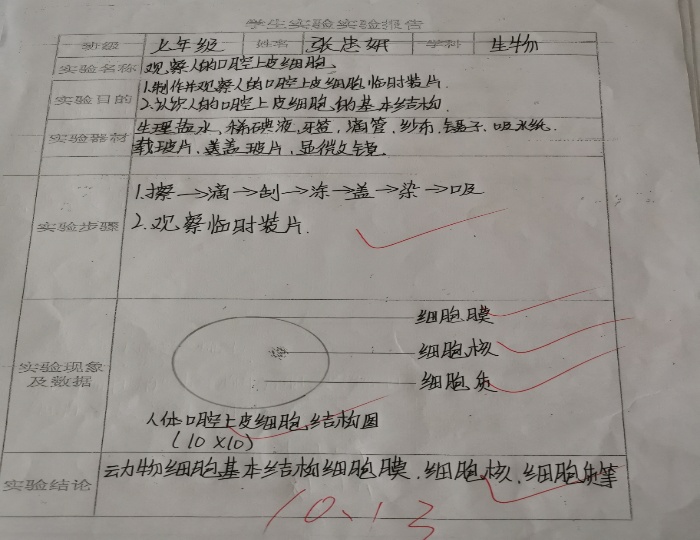 学生实验实验报告
班级 七年级 姓名 张忠妍 学科 生物
实验名称 观察人的口腔上皮细胞
实验目的 1.制作并观察人的口腔上皮细胞临时装片.
2.认识人的口腔上皮细胞的基本结构.
实验器材 生理盐水、稀碘液、牙签、滴管、纱布、镊子、吸水纸.
载玻片、盖玻片、显微镜.
实验步骤 1.擦→滴→刮→涂→盖→染→吸
2.观察临时装片.
实验现象及数据
细胞膜
细胞核
细胞质
人体口腔上皮细胞结构图
(10×10)
实验结论 动物细胞基本结构细胞膜、细胞核、细胞质等
10.13